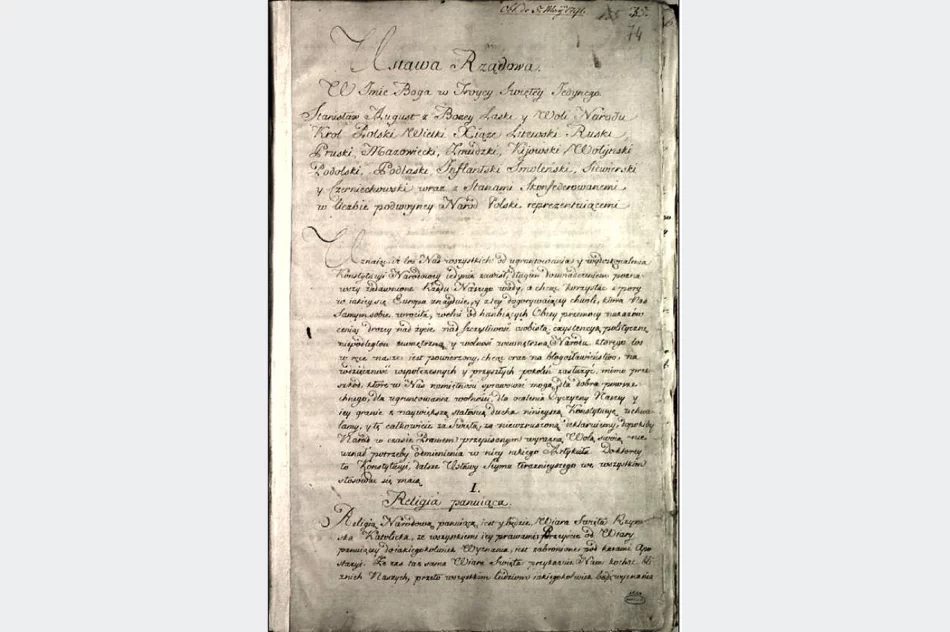 Obl. de 5. Maij 1791.
74
Ustawa Rządowa.
W Imie Boga w Troycy Swiętey Jedynego.
Stanisław August z Bozey Łaski y Woli Narodu
Krol Polski Wielki Xiąże Litewski Ruski
Pruski, Mazowiecki, Żmudzki, Kijowski Wołyński
Podolski, Podlaski, Inflantski Smoleński, Siewierski
y Czerniechowski wraz z Stanami Skonfederowanemi
w liczbie podwoyney Naród Polski reprezentuiącemi
Uznaiąc, iż los Nas wszystkich od ugruntowania y wydoskonalenia
Konstytucyi Narodowey iedynie zawisł, długim doswiadczeniem pozna-
wszy zadawnione Rządu Naszego wady, a chcąc korzystać z pory
w iakiey się Europa znayduie, y z tey dogorywaiącey chwili, która Nas
samym sobie wrociła, wolni od hanbiących Obcey przemocy nakazów
ceniąc drożey nad życie nad szczęśliwość osobistą exystencyą polityczną
niepodległość zewnętrzną y wolność wewnętrzną Narodu, którego los
w ręce nasze iest powierzony, chcąc oraz na błogosławieństwo, na
wdzięczność wspołczesnych y przyszłych pokoleń zasłużyć, mimo prze-
szkód, które w Nas namiętności sprawować mogą, dla dobra powsze-
chnego, dla ugruntowania wolności, dla ocalenia Oyczyzny Naszey y
iey granic z naywiększą stałością ducha ninieyszą Konstytucyę uchwa-
lamy, y tę całkowicie za świętą, za niewzruszoną deklaruiemy, dopokiby
Naród w czasie Prawem przepisanym wyraźną Wolą swoią nie
uznał potrzeby odmienienia w niey iakiego Artykułu. Do ktorey
to Konstytucyi, dalsze Ustawy Seymu teraznieyszego we wszystkim
stosować się maią
I.
Religia panuiąca.
Religią Narodową panuiącą iest y będzie Wiara Swięta Rzym-
ska Katolicka, ze wszystkiemi iey prawami. Przeyście od Wiary
panuiącey do iakiegokolwiek Wyznania, iest zabronione pod karami Apo-
stazyi. Że zaś taż sama Wiara Swięta przykazuie Nam kochać bli-
źnich Naszych, przeto wszystkim ludziom iakiegokolwiek bądź wyznania